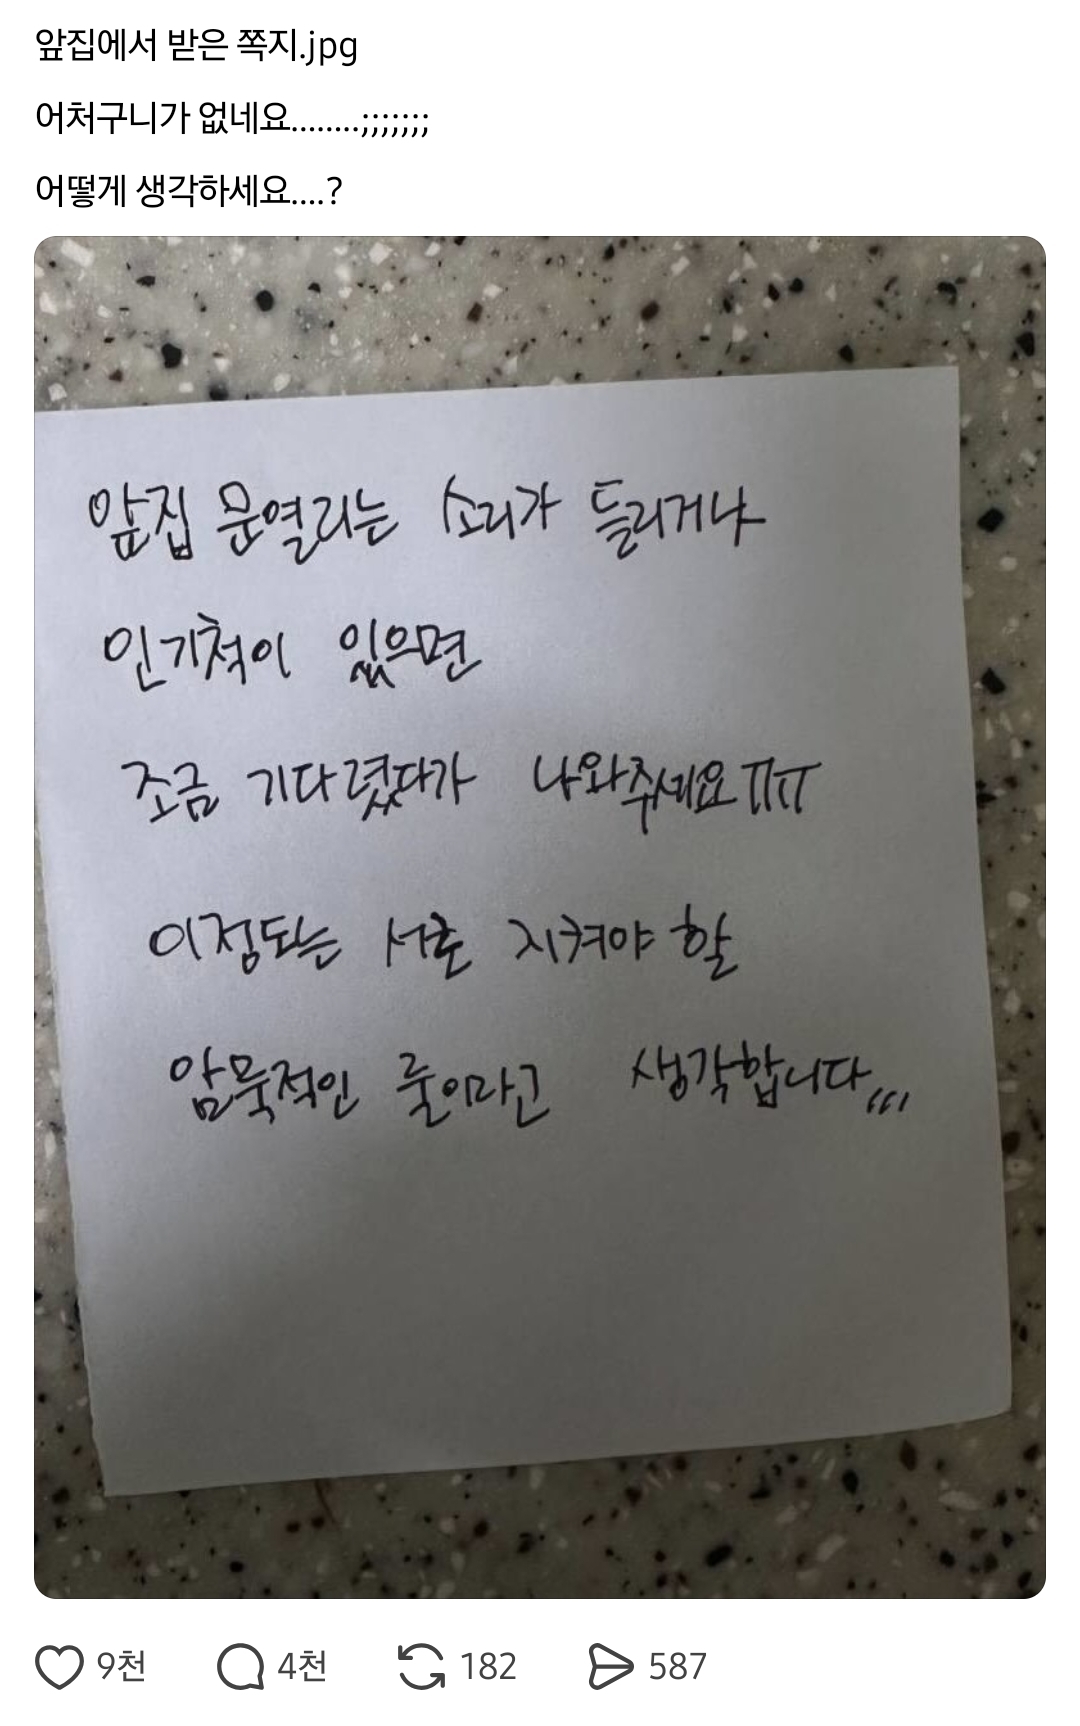 앞집에서 받은 쪽지.jpg
어처구니가 없네요........;;;;;;;
어떻게 생각하세요....?
앞집 문열리는 소리가 들리거나
인기척이 있으면
조금 기다렸다가 나와주세요ㅠㅠ
이정도는 서로 지켜야 할
암묵적인 룰이라고 생각합니다,,,
9천 4천 182 587